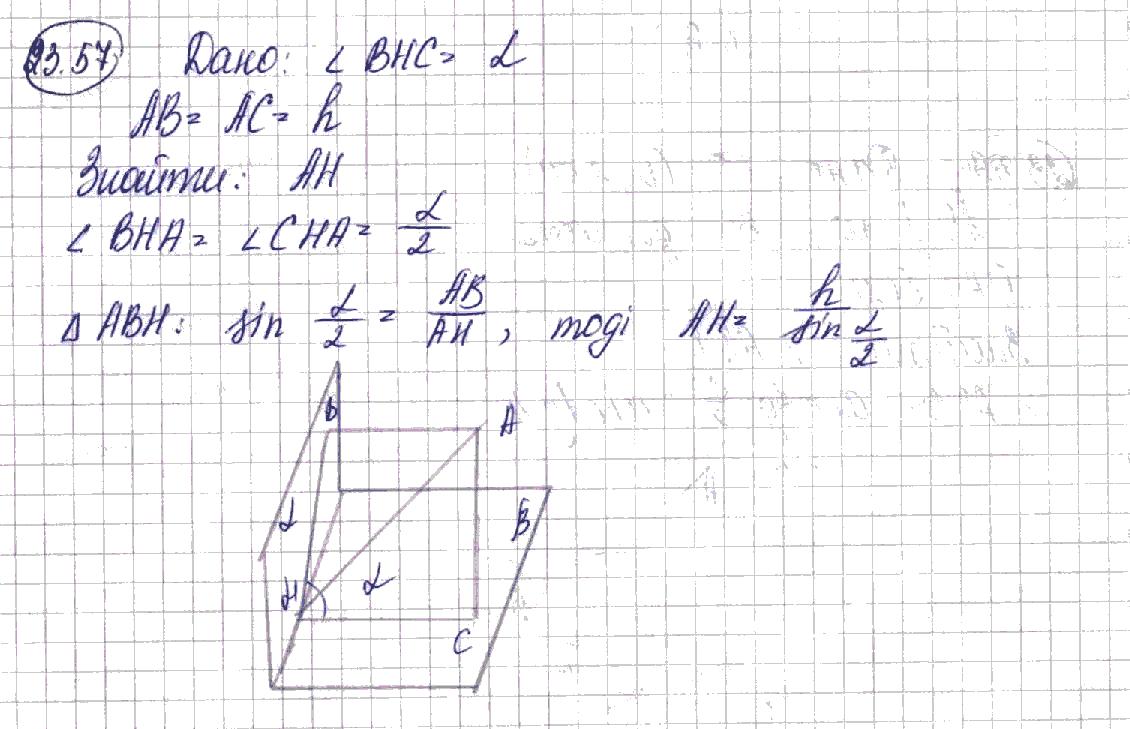 23.57 Дано: ∠ BHC = α
AB = AC = h
Знайти: AH
∠ BHA = ∠ CHA = α/2
Δ ABH: sin α/2 = AB/AH, тоді AH = h/sin α/2
B A
α β
H α
C